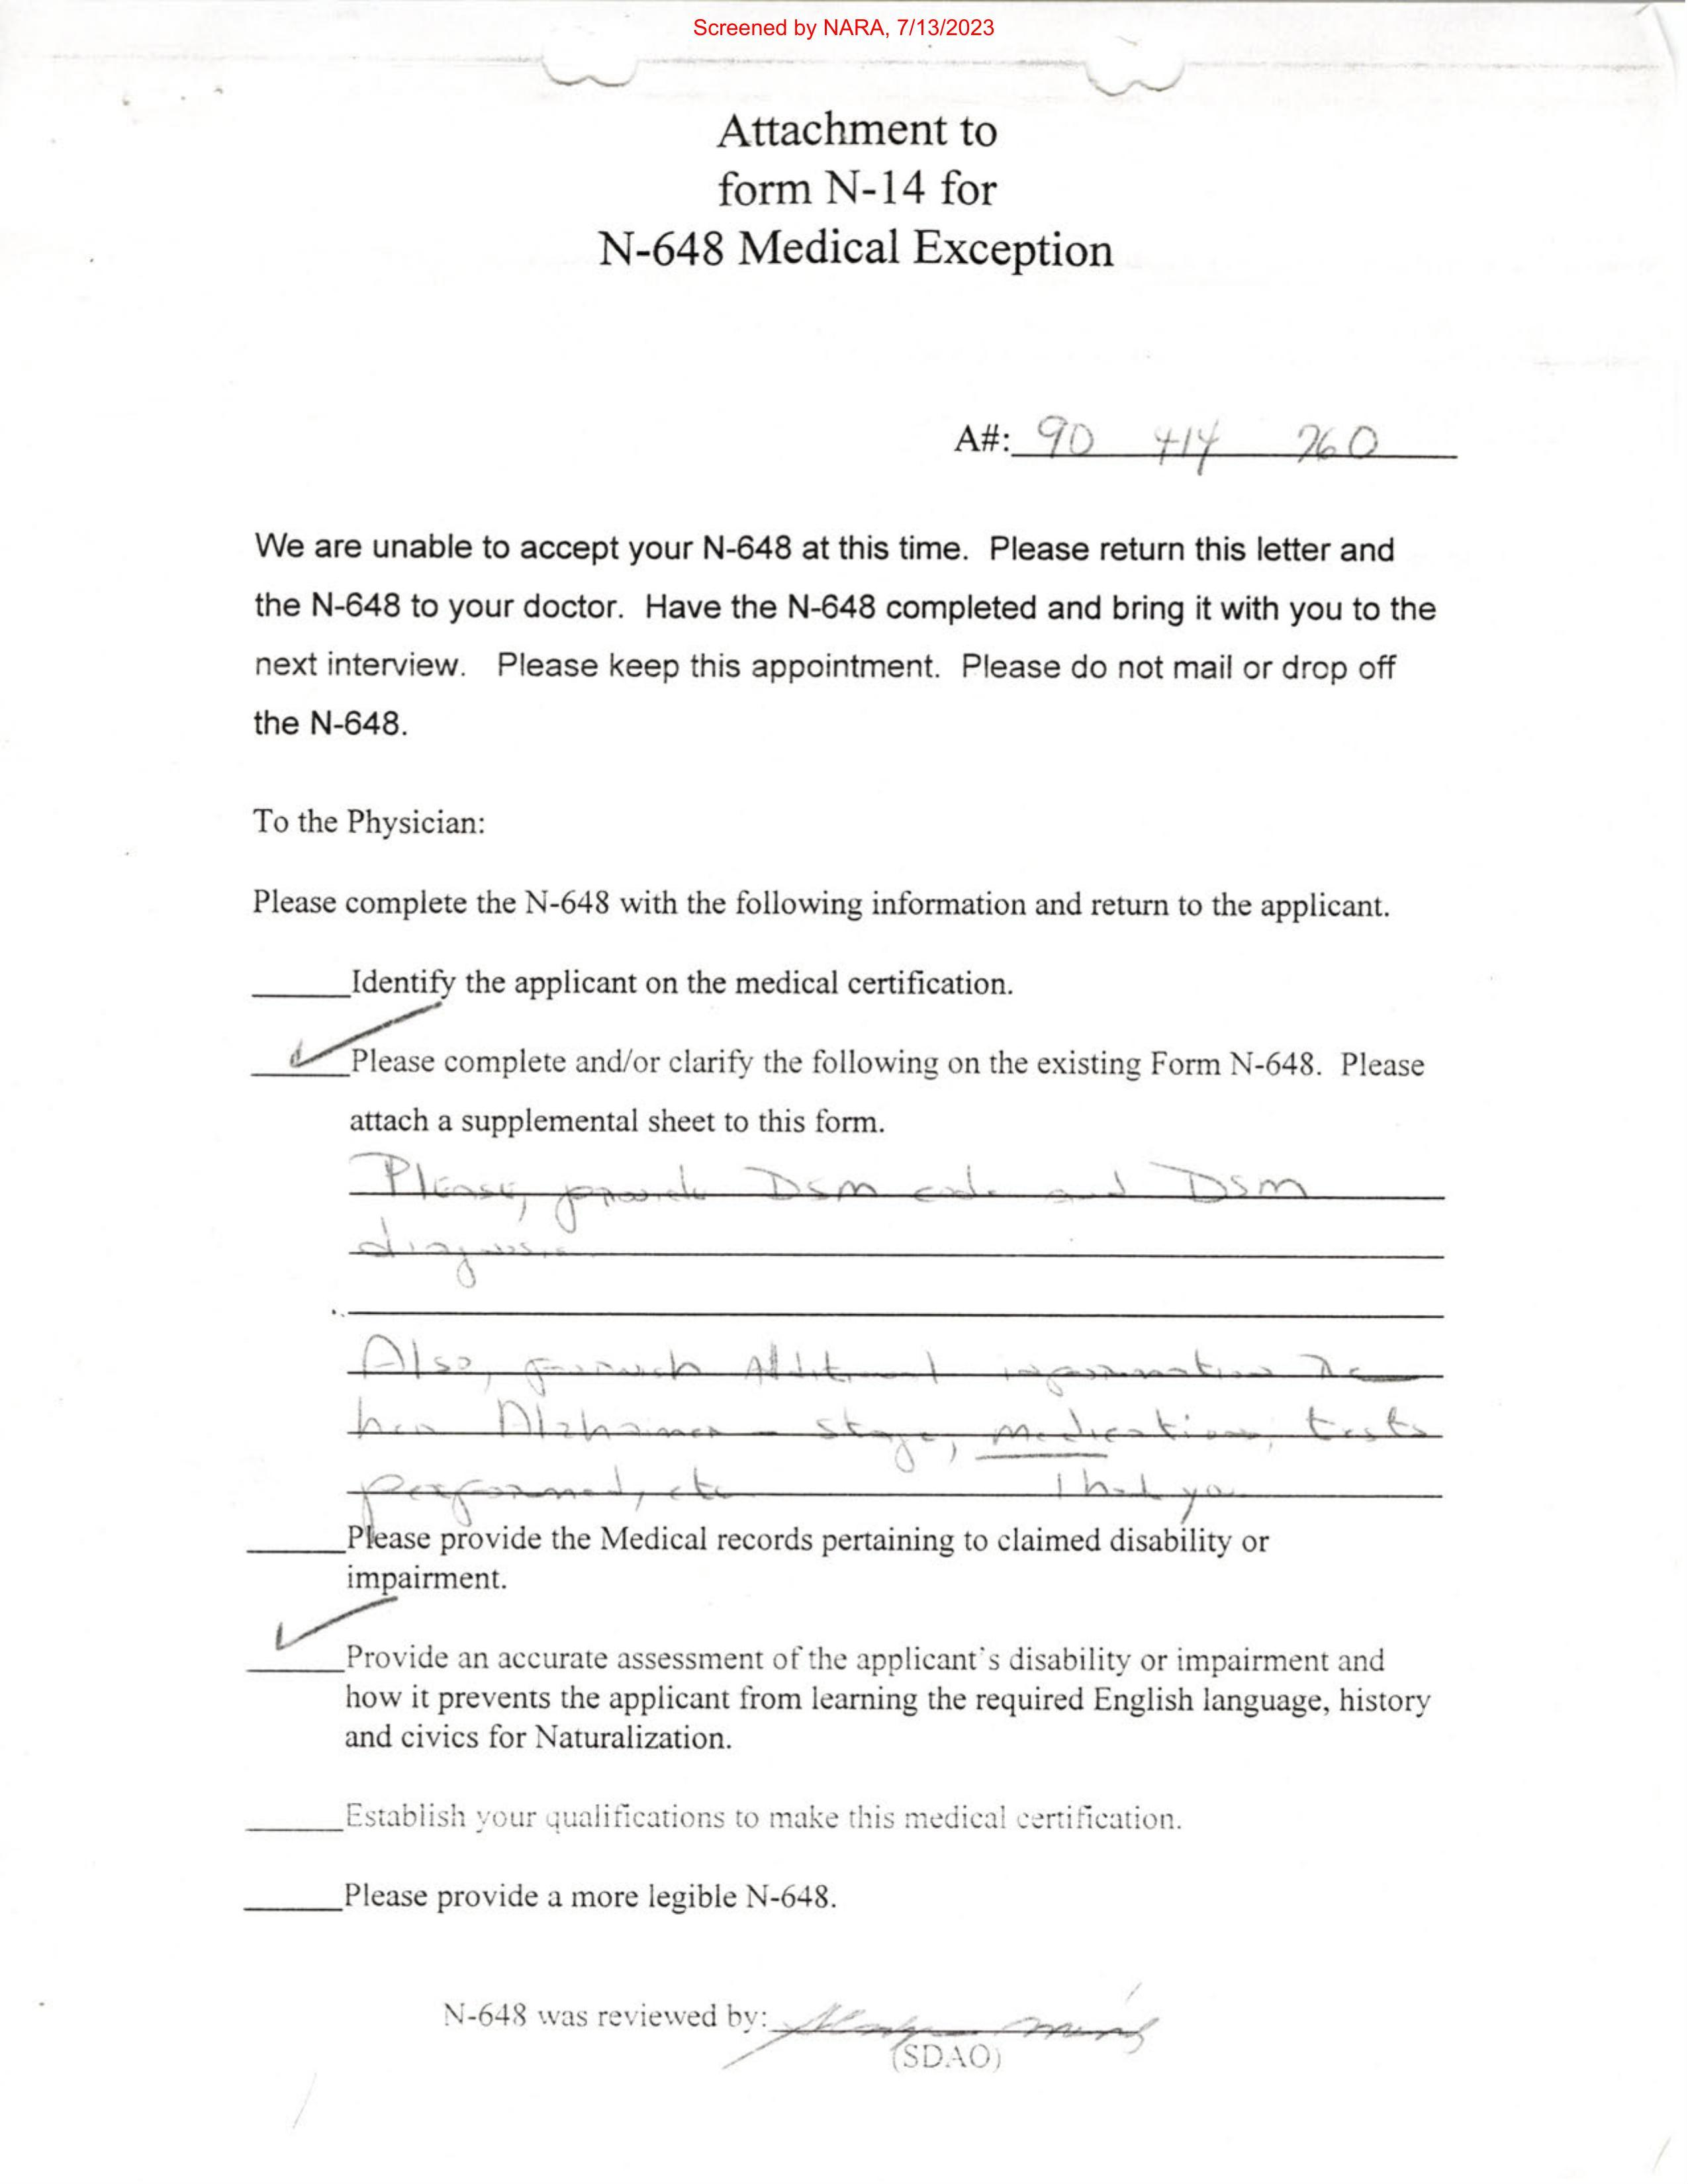 Screened by NARA, 7/13/2023
Attachment to
form N-14 for
N-648 Medical Exception
A#: 90 414 760
We are unable to accept your N-648 at this time. Please return this letter and
the N-648 to your doctor. Have the N-648 completed and bring it with you to the
next interview. Please keep this appointment. Please do not mail or drop off
the N-648.
To the Physician:
Please complete the N-648 with the following information and return to the applicant.
Identify the applicant on the medical certification.
Please complete and/or clarify the following on the existing Form N-648. Please
attach a supplemental sheet to this form.
Please, provide DSM code and DSM
diagnosis
Also, furnish additional information re
her Alzhaimer - stage, medication, tests
performed, etc Thank you
Please provide the Medical records pertaining to claimed disability or
impairment.
Provide an accurate assessment of the applicant's disability or impairment and
how it prevents the applicant from learning the required English language, history
and civics for Naturalization.
Establish your qualifications to make this medical certification.
Please provide a more legible N-648.
N-648 was reviewed by:
(SDAO)